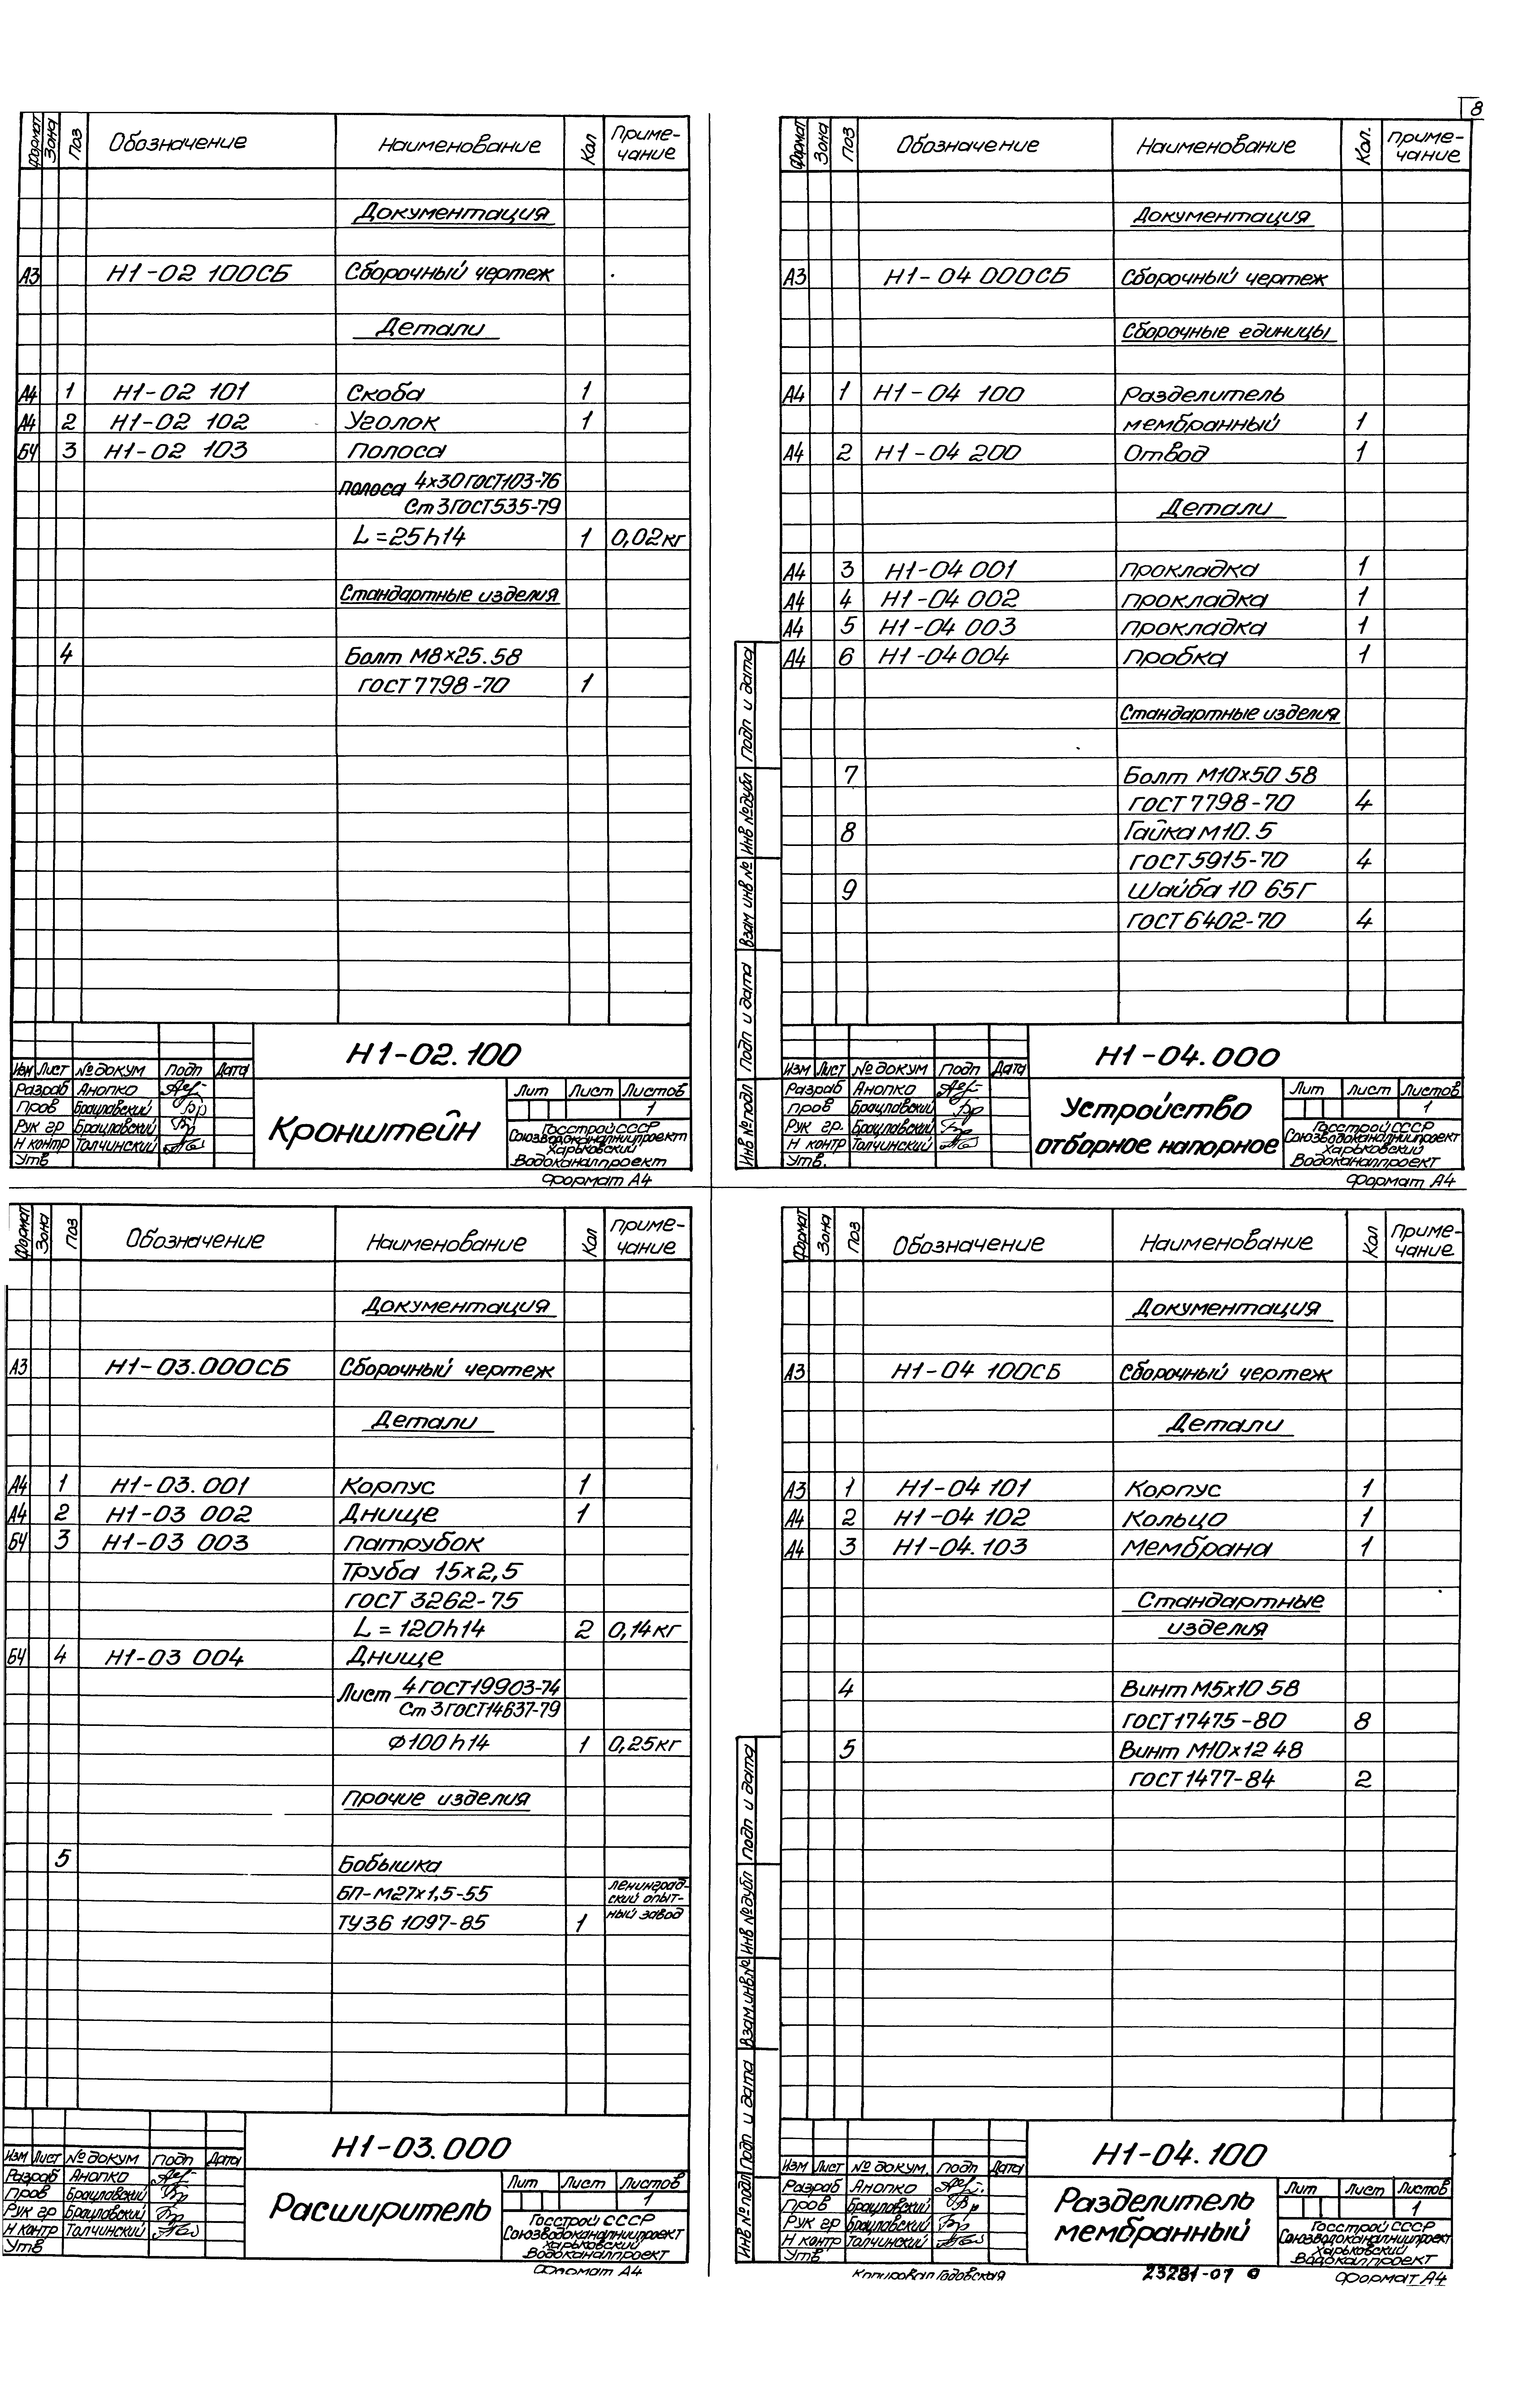 8
Формат Зона Поз Обозначение Наименование Кол Приме-
чание
Документация
А3 Н1-02 100СБ Сборочный чертеж
Детали
А4 1 Н1-02 101 Скоба 1
А4 2 Н1-02 102 Уголок 1
БЧ 3 Н1-02 103 Полоса
Полоса 4х30 ГОСТ 103-76
Ст 3 ГОСТ 535-79
L=25h14 1 0,02кг
Стандартные изделия
4 Болт М8х25.58
ГОСТ 7798-70 1
Н1-02.100
Изм Лист № докум Подп Дата
Разраб Анопко
Пров Брацлавский
Рук гр Брацлавский
Н контр Толчинский
Утв
Кронштейн
Лит Лист Листов
1
Госстрой СССР
Союзводоканалниипроект
Харьковский
Водоканалпроект
Формат А4
Формат Зона Поз Обозначение Наименование Кол. Приме-
чание
Документация
А3 Н1-04 000СБ Сборочный чертеж
Сборочные единицы
А4 1 Н1-04 100 Разделитель
мембранный 1
А4 2 Н1-04 200 Отвод 1
Детали
А4 3 Н1-04 001 Прокладка 1
А4 4 Н1-04 002 Прокладка 1
А4 5 Н1-04 003 Прокладка 1
А4 6 Н1-04 004 Пробка 1
Стандартные изделия
7 Болт М10х50 58
ГОСТ 7798-70 4
8 Гайка М10.5
ГОСТ 5915-70 4
9 Шайба 10 65Г
ГОСТ 6402-70 4
Инв № подл Подп и дата Взам инв № Инв № дубл Подп и дата
Н1-04.000
Изм Лист № докум Подп Дата
Разраб Анопко
Пров Брацлавский
Рук гр. Брацлавский
Н контр Толчинский
Утв.
Устройство
отборное напорное
Лит Лист Листов
1
Госстрой СССР
Союзводоканалниипроект
Харьковский
Водоканалпроект
Формат А4
Формат Зона Поз Обозначение Наименование Кол Приме-
чание
Документация
А3 Н1-03.000СБ Сборочный чертеж
Детали
А4 1 Н1-03.001 Корпус 1
А4 2 Н1-03 002 Днище 1
БЧ 3 Н1-03 003 Патрубок
Труба 15х2,5
ГОСТ 3262-75
L=120h14 2 0,14кг
БЧ 4 Н1-03 004 Днище
Лист 4 ГОСТ 19903-74
Ст 3 ГОСТ 14637-79
Ф100 h14 1 0,25кг
Прочие изделия
5 Бобышка
БП-М27х1,5-55 Ленинград-
ский опыт-
ТУ36 1097-85 1 ный завод
Н1-03.000
Изм Лист № докум Подп Дата
Разраб Анопко
Пров Брацлавский
Рук гр Брацлавский
Н контр Толчинский
Утв
Расширитель
Лит Лист Листов
1
Госстрой СССР
Союзводоканалниипроект
Харьковский
Водоканалпроект
Формат А4
Формат Зона Поз Обозначение Наименование Кол Приме-
чание
Документация
А3 Н1-04 100СБ Сборочный чертеж
Детали
А3 1 Н1-04 101 Корпус 1
А4 2 Н1-04 102 Кольцо 1
А4 3 Н1-04.103 Мембрана 1
Стандартные
изделия
4 Винт М5х10 58
ГОСТ 17475-80 8
5 Винт М10х12 48
ГОСТ 1477-84 2
Инв № подл Подп и дата Взам.инв.№ Инв № дубл Подп и дата
Н1-04.100
Изм Лист № докум. Подп Дата
Разраб Анопко
Пров Брацлавский
Рук гр Брацлавский
Н контр Толчинский
Утв
Разделитель
мембранный
Лит Лист Листов
1
Госстрой СССР
Союзводоканалниипроект
Харьковский
Водокалпроект
Копировал Годовская 23281-07 Формат А4